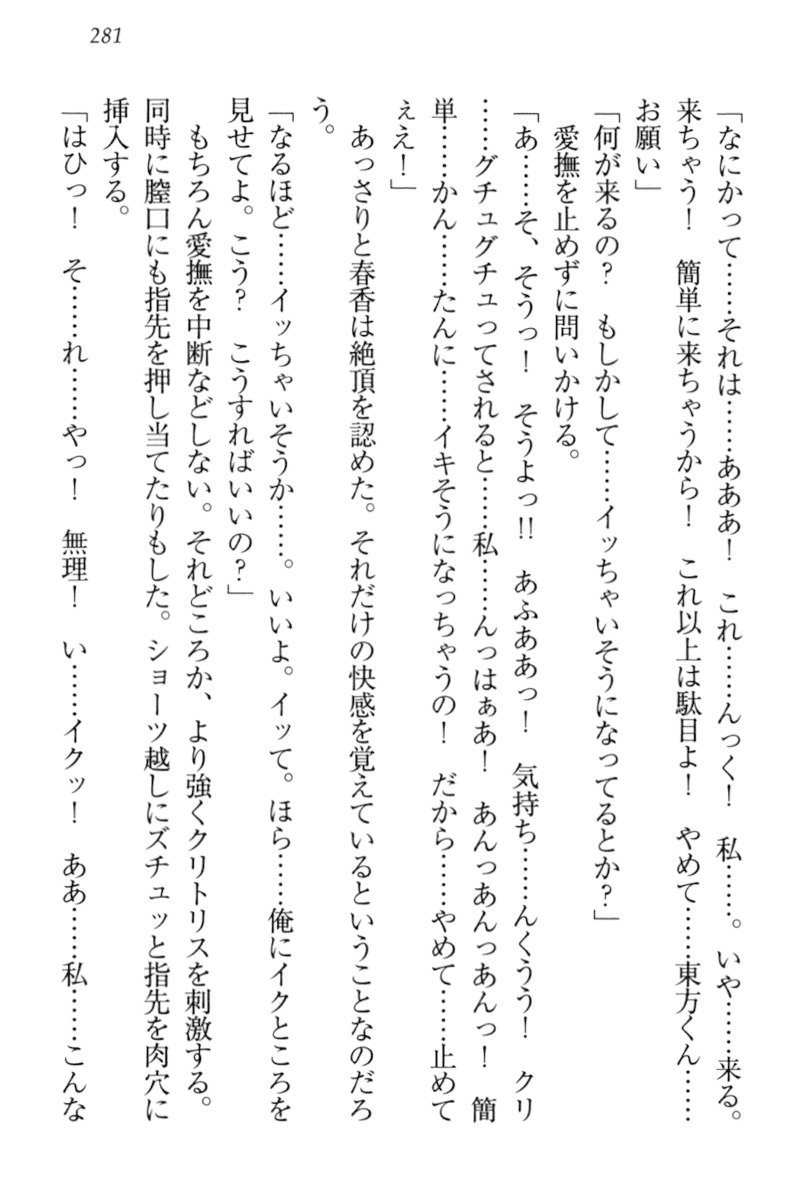 281
「なにかって……それは……あああ！　これ……んっく！　私……。いや……来る。
来ちゃう！　簡単に来ちゃうから！　これ以上は駄目よ！　やめて……東方くん……
お願い」
「何が来るの？　もしかして……イッちゃいそうになってるとか？」
愛撫を止めずに問いかける。
「あ……そ、そうっ！　そうよっ!!　あふああっ！　気持ち……んくうう！　クリ
……グチュグチュってされると……私……んっはぁあ！　あんっあんっあんっ！　簡
単……かん……たんに……イキそうになっちゃうの！　だから……やめて……止めて
ぇえ！」
あっさりと春香は絶頂を認めた。それだけの快感を覚えているということなのだろ
う。
「なるほど……イッちゃいそうか……。いいよ。イッて。ほら……俺にイクところを
見せてよ。こう？　こうすればいいの？」
もちろん愛撫を中断などしない。それどころか、より強くクリトリスを刺激する。
同時に膣口にも指先を押し当てたりもした。ショーツ越しにズチュッと指先を肉穴に
挿入する。
「はひっ！　そ……れ……やっ！　無理！　い……イクッ！　ああ……私……こんな